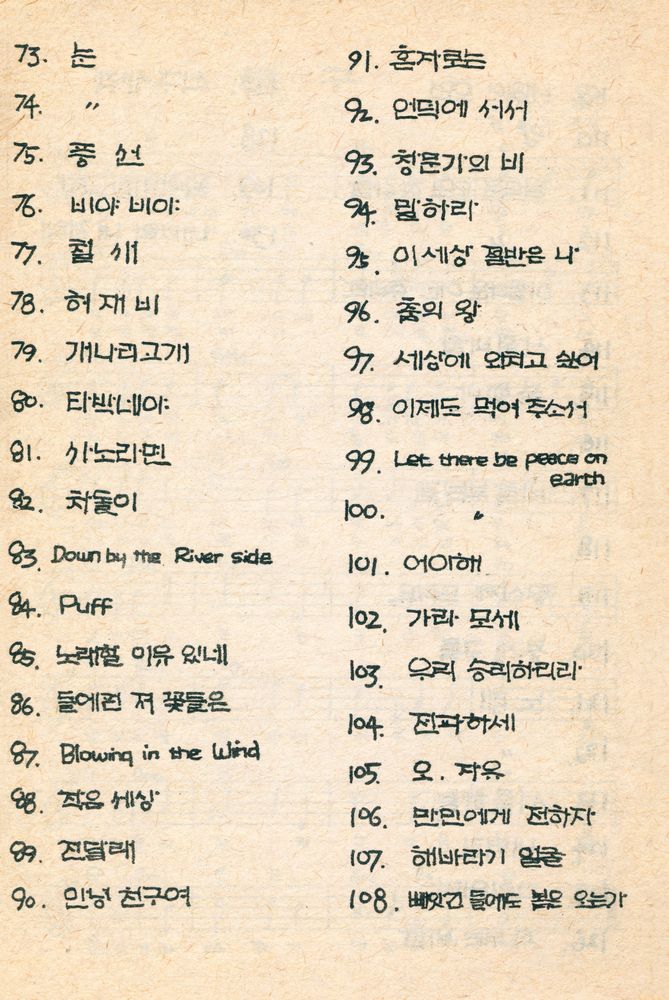 73. 눈
74. "
75. 풍선
76. 비야 비야
77. 철새
78. 허재비
79. 개나리고개
80. 타박네야
81. 사노라면
82. 차돌이
83. Down by the River side
84. Puff
85. 노래할 이유 있네
86. 들에핀 저 꽃들은
87. Blowing in the Wind
88. 작은 세상
89. 진달래
90. 안녕 친구여
91. 혼자로는
92. 언덕에 서서
93. 청문기의 비
94. 말하라
95. 이세상 절반은 나
96. 춤의 왕
97. 세상에 외치고 싶어
98. 이제도 먹여 주소서
99. Let there be peace on
earth
100. "
101. 어이해
102. 가라 모세
103. 우리 승리하리라
104. 전파하세
105. 오. 자유
106. 만민에게 전하자
107. 해바라기 얼굴
108. 빼앗긴 들에도 봄은 오는가